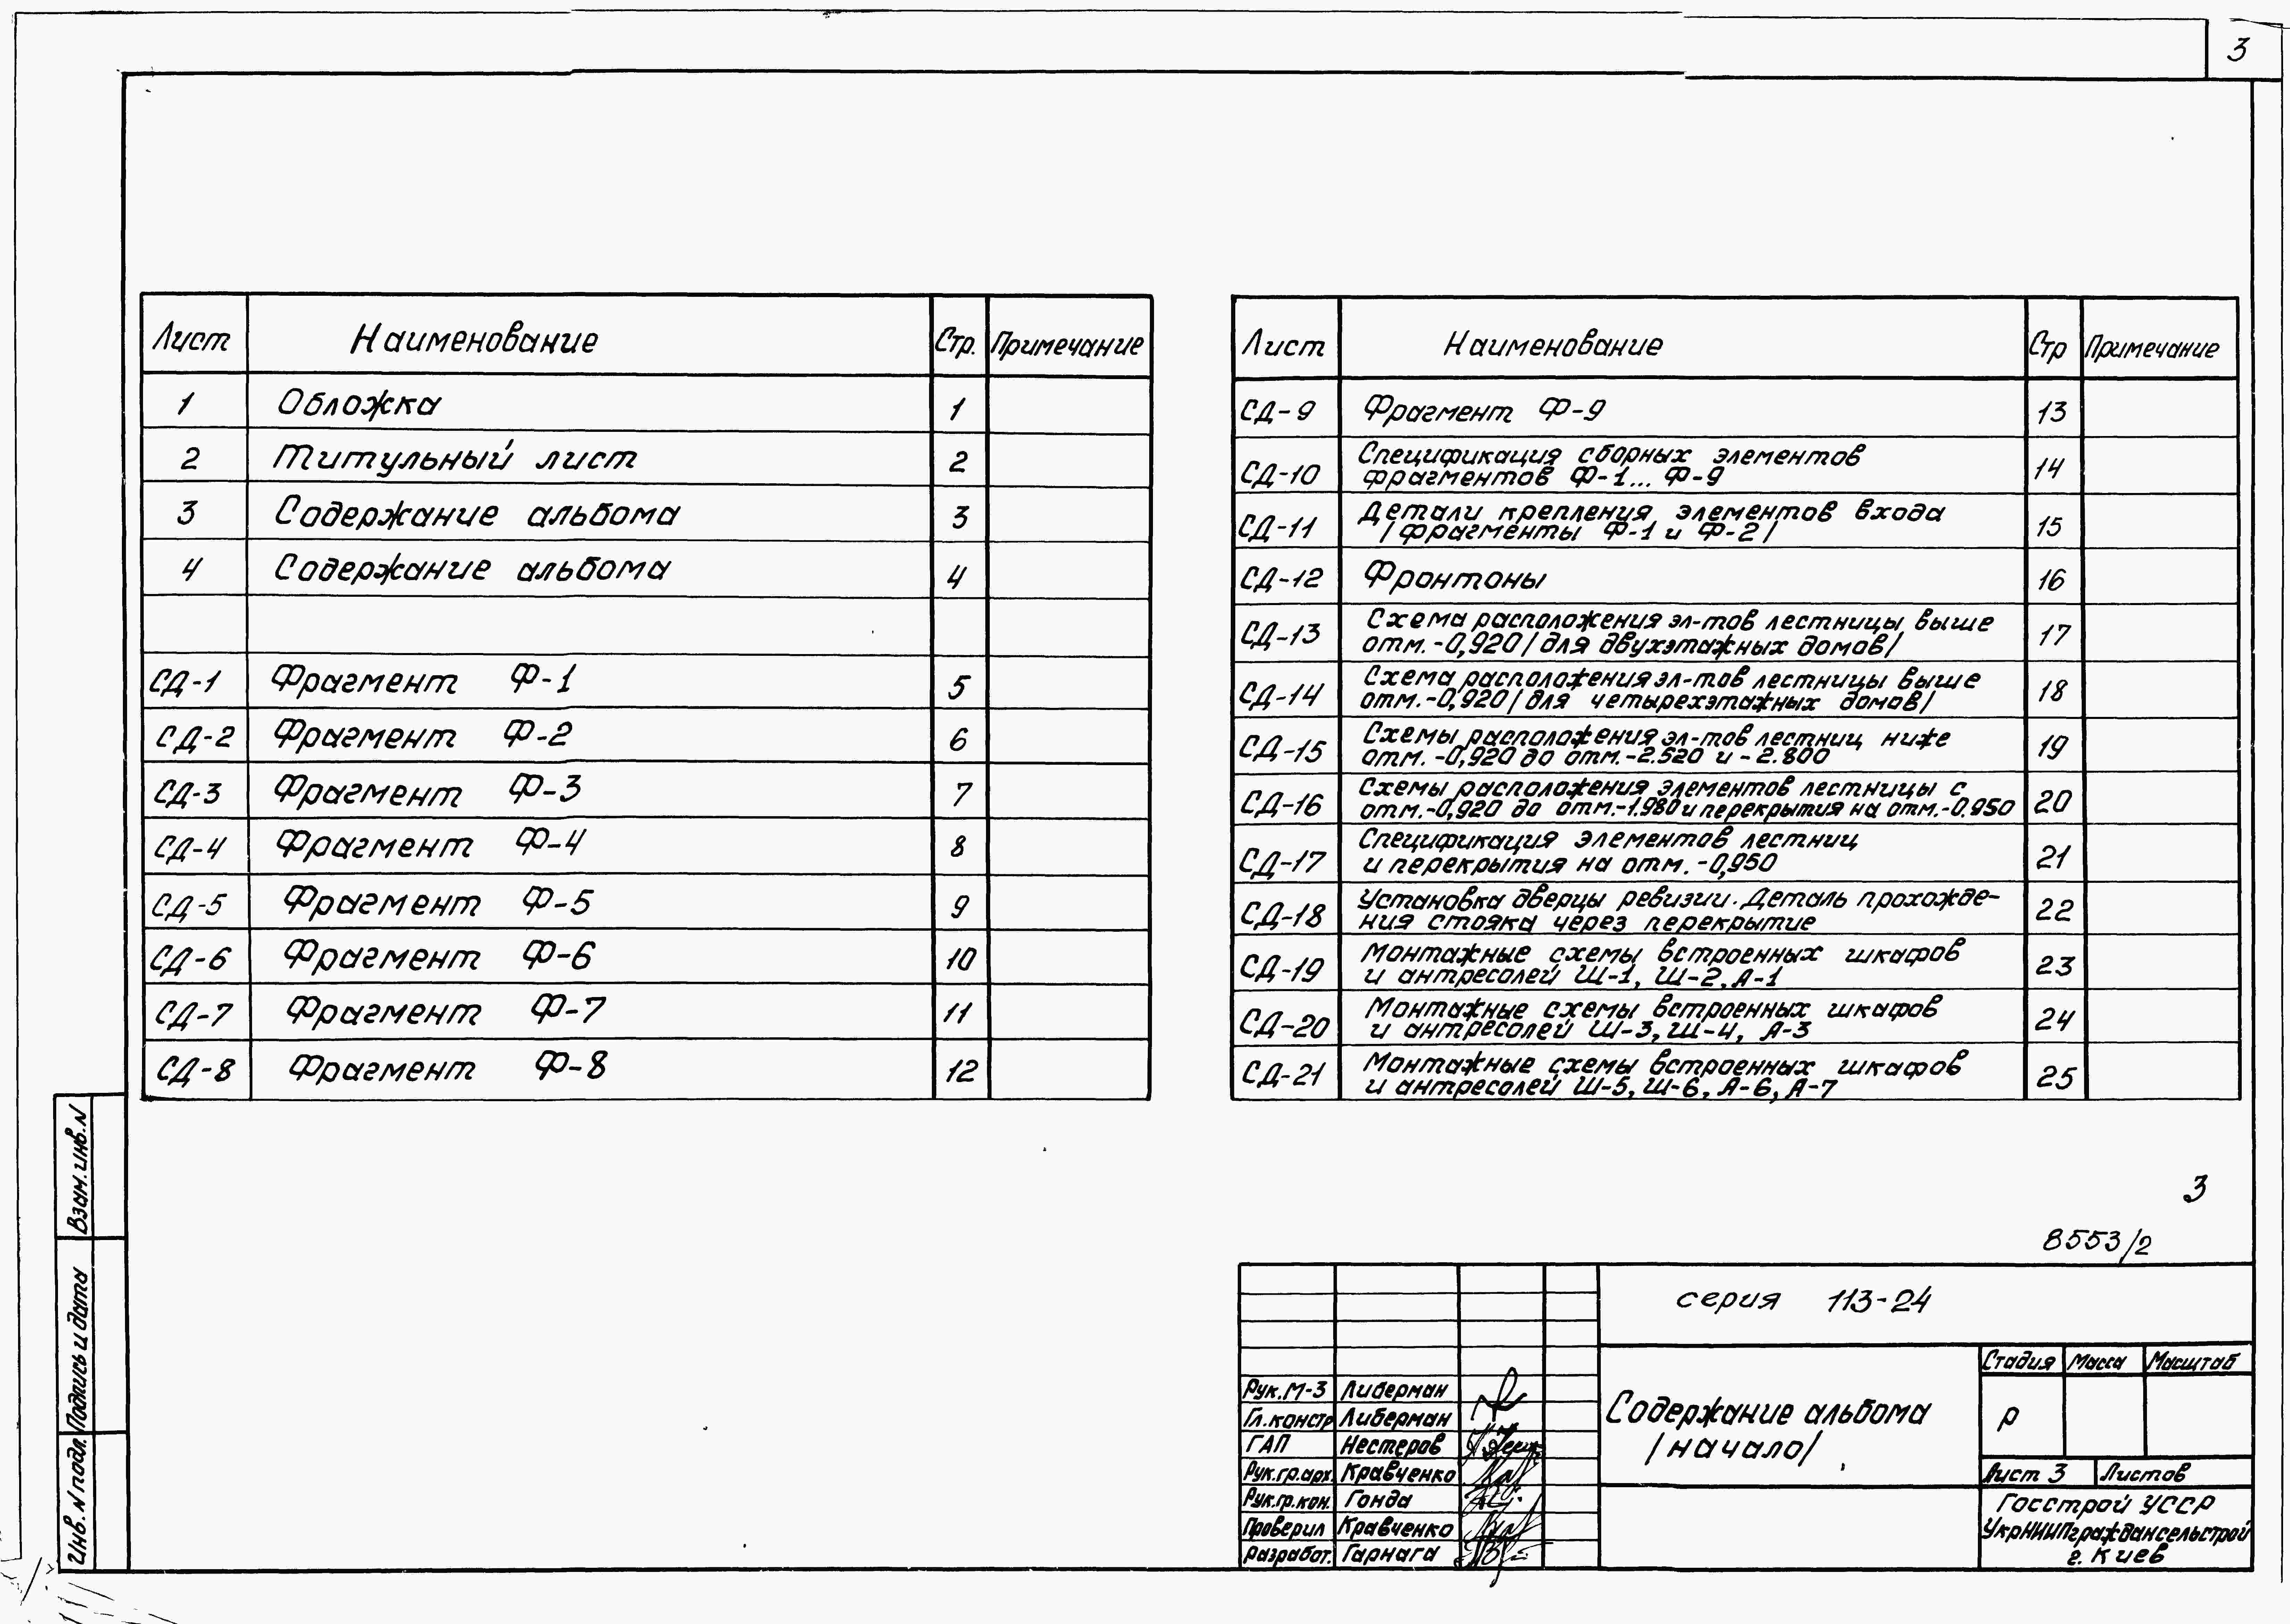 3
Лист Наименование Стр. Примечание
1 Обложка 1
2 Титульный лист 2
3 Содержание альбома 3
4 Содержание альбома 4
СД-1 Фрагмент Ф-1 5
СД-2 Фрагмент Ф-2 6
СД-3 Фрагмент Ф-3 7
СД-4 Фрагмент Ф-4 8
СД-5 Фрагмент Ф-5 9
СД-6 Фрагмент Ф-6 10
СД-7 Фрагмент Ф-7 11
СД-8 Фрагмент Ф-8 12
Лист Наименование Стр Примечание
СД-9 Фрагмент Ф-9 13
СД-10 Спецификация сборных элементов 14
фрагментов Ф-1... Ф-9
СД-11 Детали крепления элементов входа 15
/фрагменты Ф-1 и Ф-2/
СД-12 Фронтоны 16
СД-13 Схема расположения эл-тов лестницы выше 17
отм.-0,920/для двухэтажных домов/
СД-14 Схема расположения эл-тов лестницы выше 18
отм.-0,920/для четырехэтажных домов/
СД-15 Схемы расположения эл-тов лестниц ниже 19
отм. -0,920 до отм.-2.520 и -2.800
СД-16 Схемы расположения элементов лестницы с 20
отм.-0,920 до отм.-1.980 и перекрытия на отм.-0.950
СД-17 Спецификация элементов лестниц 21
и перекрытия на отм. -0,950
СД-18 Установка дверцы ревизии. Деталь прохожде- 22
ния стояка через перекрытие
СД-19 Монтажные схемы встроенных шкафов 23
и антресолей Ш-1, Ш-2, А-1
СД-20 Монтажные схемы встроенных шкафов 24
и антресолей Ш-3, Ш-4, А-3
СД-21 Монтажные схемы встроенных шкафов 25
и антресолей Ш-5, Ш-6, А-6, А-7
Взам. инв. N
Подпись и дата
Инв. N подл.
3
8553/2
серия 113-24
Рук. М-3 Либерман
Гл. констр Либерман
ГАП Нестеров
Рук. гр. арх. Кравченко
Рук. гр. кон. Гонда
Проверил Кравченко
Разработ. Гарнага
Содержание альбома
/начало/
Стадия Масса Масштаб
Р
Лист 3 Листов
Госстрой УССР
УкрНИИПграждансельстрой
г. Киев